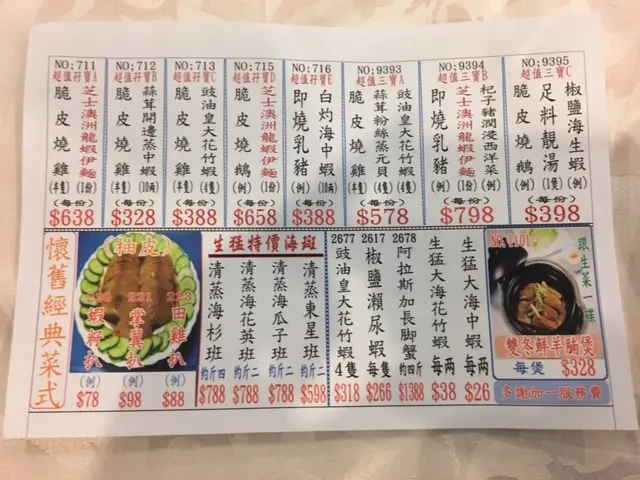 NO:711
超值孖寶A
芝士澳洲龍蝦伊麵(1份)
脆皮燒雞(半隻)
(每份)
$638
NO:712
超值孖寶B
蒜茸開邊蒸中蝦(10兩)
脆皮燒雞(半隻)
(每份)
$328
NO:713
超值孖寶C
豉油皇大花竹蝦(4隻)
脆皮燒雞(半隻)
(每份)
$388
NO:715
超值孖寶D
芝士澳洲龍蝦伊麵(1份)
脆皮燒鵝(例)
(每份)
$658
NO:716
超值孖寶E
白灼海中蝦
即燒乳豬(例)
(每份)
$388
NO:9393
超值三寶A
豉油皇大花竹蝦(4隻)
蒜茸粉絲蒸元貝(4隻)
脆皮燒鵝(例)
(每份)
$578
NO:9394
超值三寶B
杞子豬潤浸西洋菜(例)
芝士澳洲龍蝦伊麵(1份)
即燒乳豬(例)
(每份)
$798
NO:9395
超值三寶C
椒鹽海生蝦
足料靚湯(1煲)
脆皮燒鵝(例)
(每份)
$398
懷舊經典菜式
(柚皮)
蝦籽扒
(例)
$78
221
掌翼扒
(例)
$98
223
田雞扒
(例)
$88
生猛特價海斑
清蒸海杉班
約斤四
$788
清蒸海花英班
約斤二
$788
清蒸海瓜子班
約斤二
$788
清蒸東星班
約斤二
$598
2677
豉油皇大花竹蝦
4隻
$318
2617
椒鹽瀨尿蝦
每隻
$266
2678
阿拉斯加長脚蟹
約四斤
$1388
生猛大海花竹蝦
每兩
$38
生猛大海中蝦
每兩
$26
NO:1101
跟生菜一碟
雙冬鮮羊腩煲
每煲
$328
多謝加一服務費